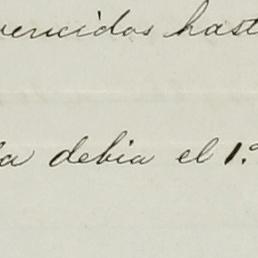 vencidos hast
la debia el 1.º